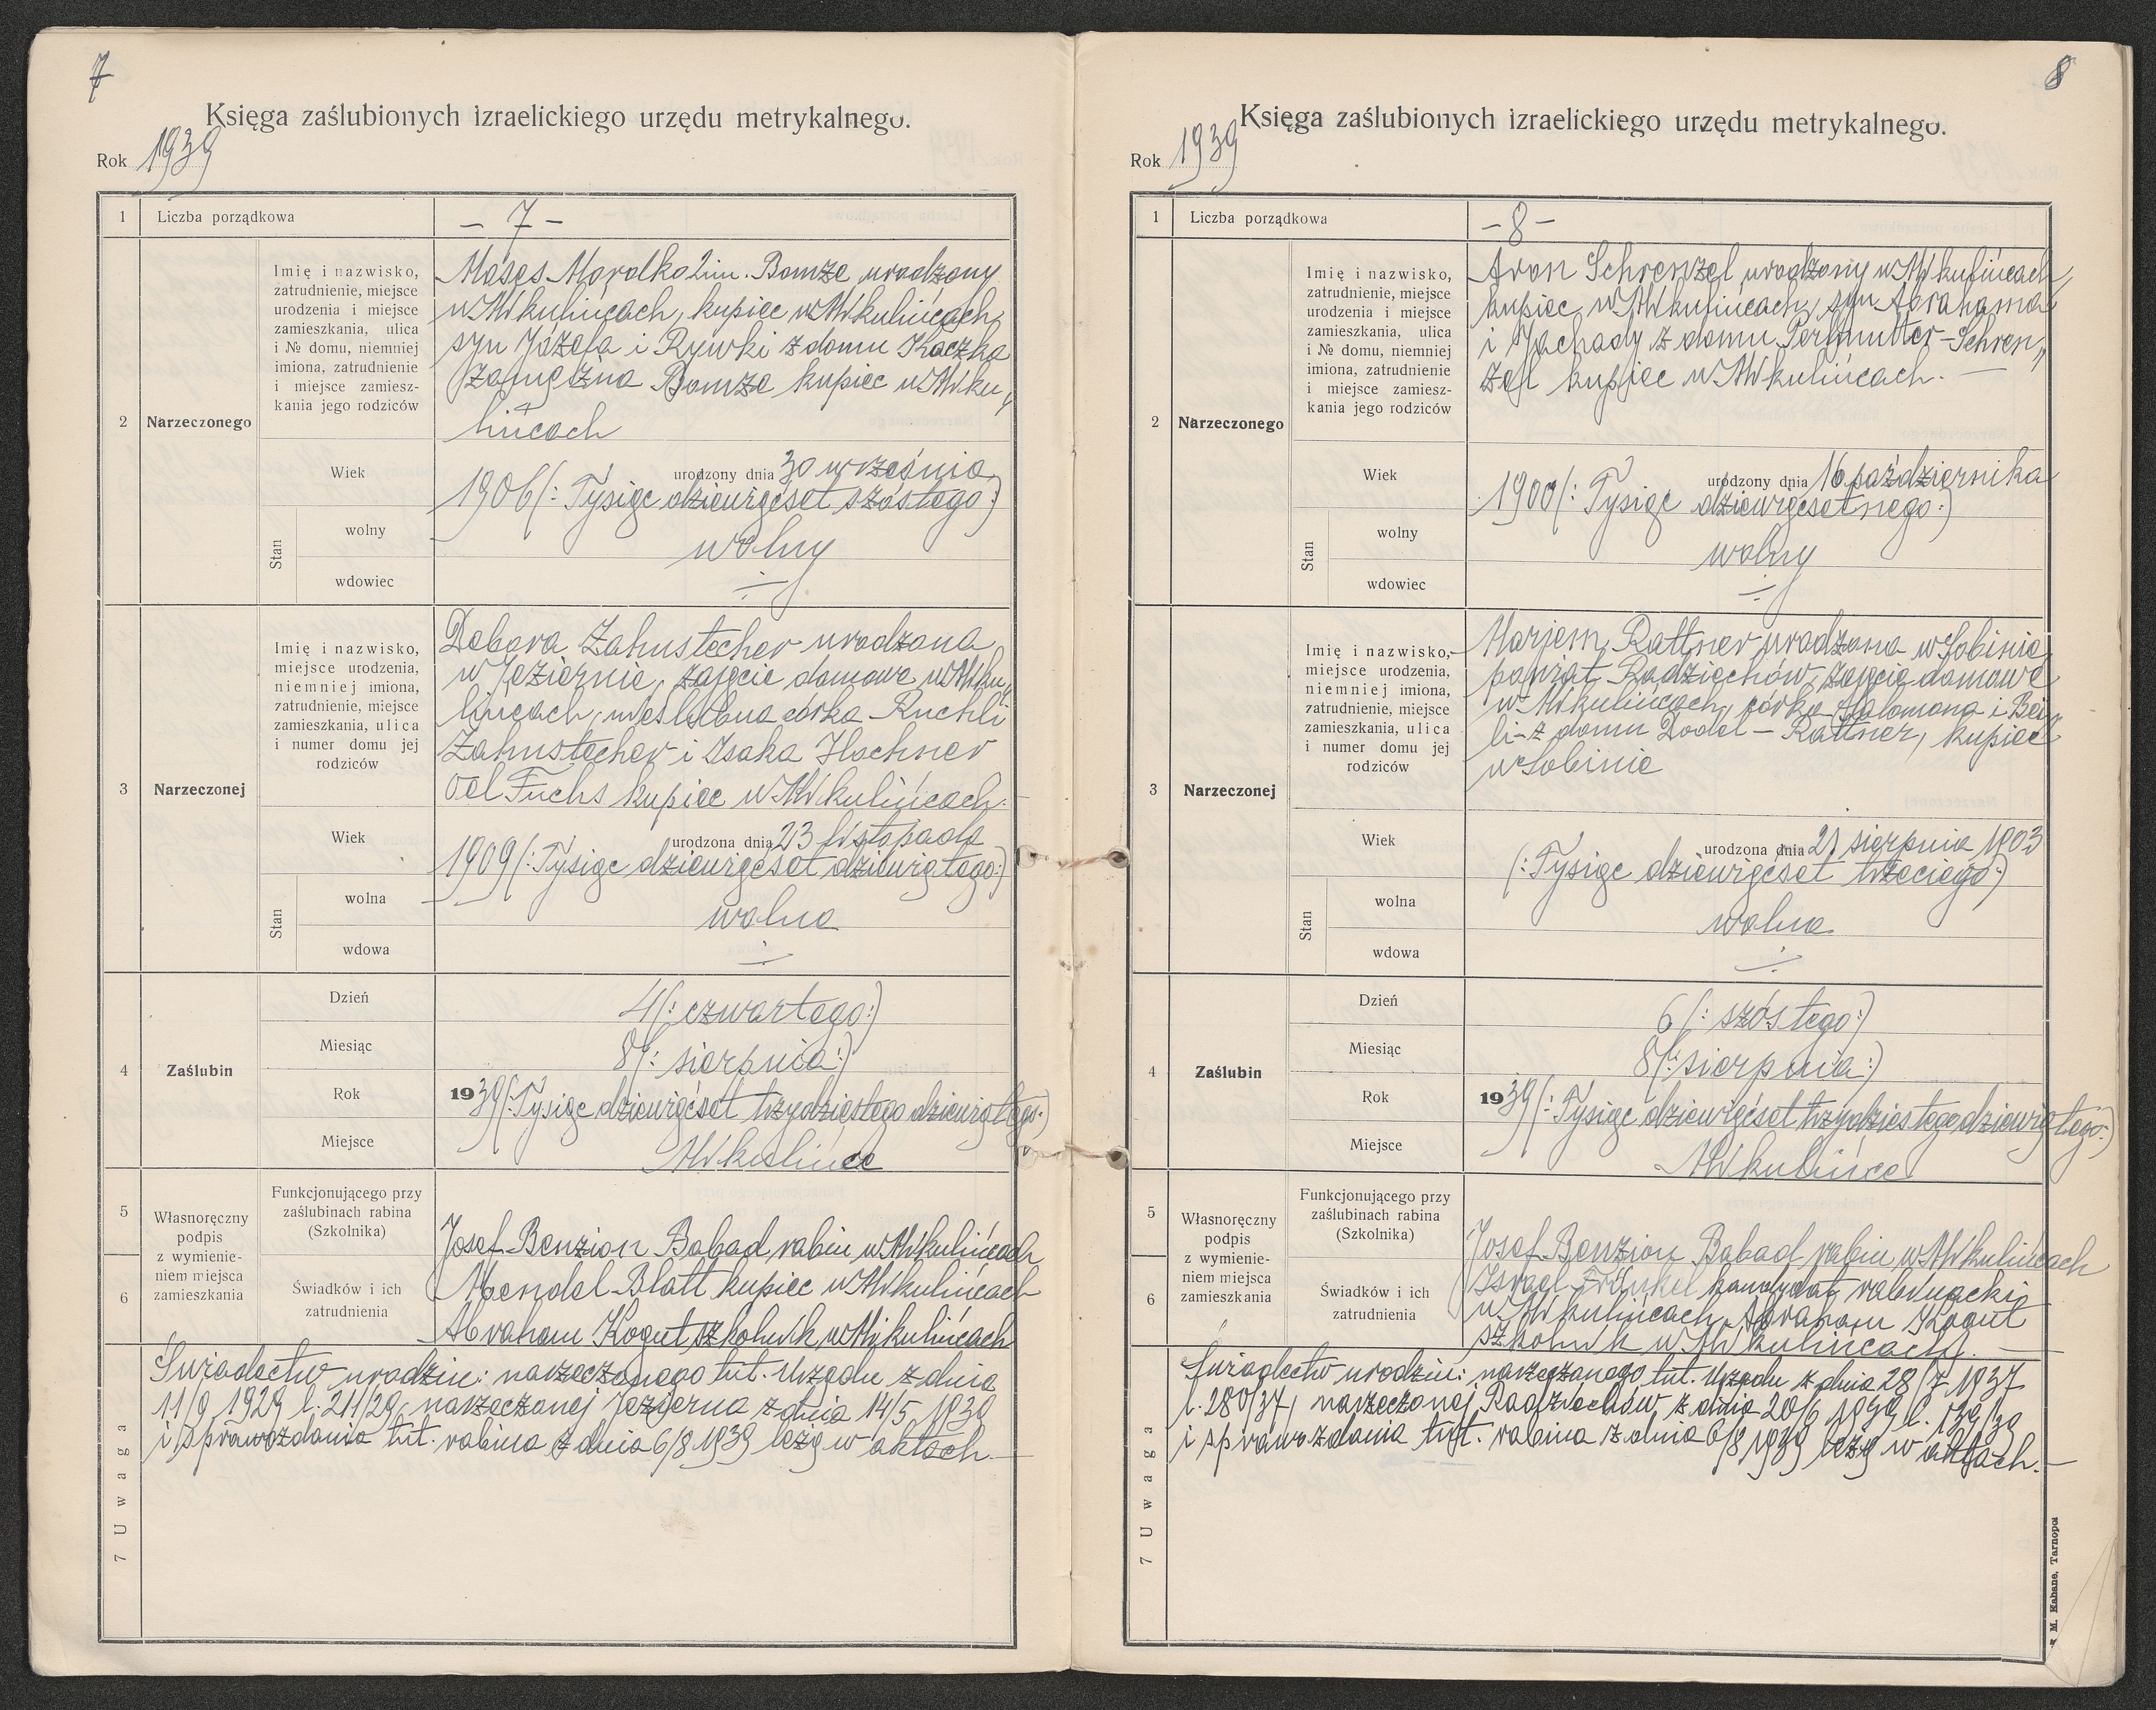 7
Księga zaślubionych izraelickiego urzędu metrykalnego.
Rok 1939
1 Liczba porządkowa
- 7 -
2 Narzeczonego
Imię i nazwisko,
zatrudnienie, miejsce
urodzenia i miejsce
zamieszkania, ulica
i № domu, niemniej
imiona, zatrudnienie
i miejsce zamiesz-
kania jego rodziców
Moses Mordko 2im. Bomze urodzony
w Mikulińcach, kupiec w Mikulińcach,
syn Józefa i Rywki z domu Kaczka
zamężna Bomze kupiec w Miku„
lińcach
Wiek
urodzony dnia 30 września
1906 (: Tysiąc dziewięćset szóstego:)
Stan
wolny
wolny
wdowiec
÷
3 Narzeczonej
Imię i nazwisko,
miejsce urodzenia,
niemniej imiona,
zatrudnienie, miejsce
zamieszkania, ulica
i numer domu jej
rodziców
Debora Zahnstecher urodzona
w Jeziernie, zajęcie domowe w Miku„
lińcach, nieślubna córka Ruchli
Zahnstecher i Isaka Hochner
vel Fuchs kupiec w Mikulińcach.
Wiek
urodzona dnia 23 listopada
1909 (: Tysiąc dziewięćset dziewiątego:)
Stan
wolna
wolna
wdowa
÷
4 Zaślubin
Dzień
4 (: czwartego:)
Miesiąc
8 (: sierpnia:)
Rok
1939 (: Tysiąc dziewięćset trzydziestego dziewiątego:)
Miejsce
Mikulińce
5
6
Własnoręczny
podpis
z wymienie-
niem miejsca
zamieszkania
Funkcjonującego przy
zaślubinach rabina
(Szkolnika)
Josef Benzion Babad rabin w Mikulińcach
Świadków i ich
zatrudnienia
Mendel Blatt kupiec w Mikulińcach
Abraham Kogut szkolnik w Mikulińcach
7 Uwaga
Świadectw urodzin: narzeczonego tut. Urzędu z dnia
11/9 1929 l. 211/29, narzeczonej Jezierna z dnia 14/5 1939
i sprawozdania tut. rabina z dnia 6/8 1939 leżą w aktach.
8
Księga zaślubionych izraelickiego urzędu metrykalnego.
Rok 1939
1 Liczba porządkowa
- 8 -
2 Narzeczonego
Imię i nazwisko,
zatrudnienie, miejsce
urodzenia i miejsce
zamieszkania, ulica
i № domu, niemniej
imiona, zatrudnienie
i miejsce zamiesz-
kania jego rodziców
Aron Schrenzel urodzony w Mikulińcach,
kupiec w Mikulińcach, syn Abrahama
i Jachady z domu Perlmutter - Schren„
zel kupiec w Mikulińcach. —
Wiek
urodzony dnia 16 października
1900 (: Tysiąc dziewięćsetnego:)
Stan
wolny
wolny
wdowiec
÷
3 Narzeczonej
Imię i nazwisko,
miejsce urodzenia,
niemniej imiona,
zatrudnienie, miejsce
zamieszkania, ulica
i numer domu jej
rodziców
Marjem Rattner urodzona w Sobinie
powiat Radziechów, zajęcie domowe
w Mikulińcach, córka Salomona i Bei„
li z domu Dodel - Rattner, kupiec
w Sobinie
Wiek
urodzona dnia 21 sierpnia 1903
(: Tysiąc dziewięćset trzeciego:)
Stan
wolna
wolna
wdowa
÷
4 Zaślubin
Dzień
6 (: szóstego:)
Miesiąc
8 (: sierpnia:)
Rok
1939 (: Tysiąc dziewięćset trzydziestego dziewiątego:)
Miejsce
Mikulińce
5
6
Własnoręczny
podpis
z wymienie-
niem miejsca
zamieszkania
Funkcjonującego przy
zaślubinach rabina
(Szkolnika)
Josef Benzion Babad rabin w Mikulińcach
Świadków i ich
zatrudnienia
Israel Fränkel kandydat rabinacki
w Mikulińcach, Abraham Kogut
szkolnik w Mikulińcach. —
7 Uwaga
Świadectw urodzin: narzeczonego tut. Urzędu z dnia 28/7 1937
l. 280/37, narzeczonej Radziechów z dnia 20/6 1939 l. 139/39
i sprawozdania tut. rabina z dnia 6/8 1939 leżą w aktach. —
M. Kahane, Tarnopol